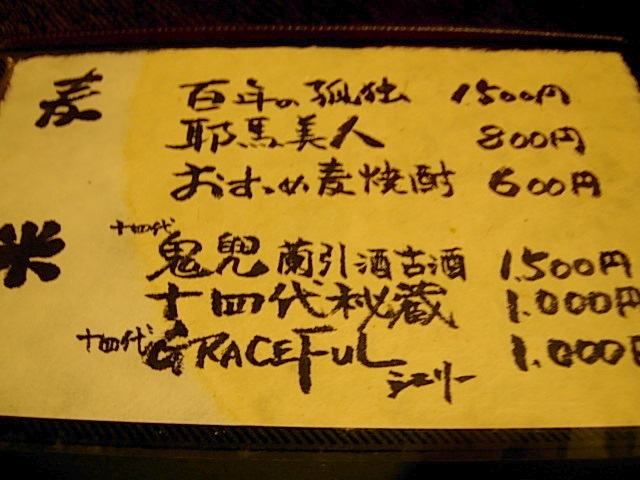 麦
百年の孤独 1500円
耶馬美人 800円
おすすめ麦焼酎 600円
米
十四代
鬼兜 蘭引酒古酒 1.500円
十四代秘蔵 1.000円
十四代 GRACEFUL 1.000円
シェリー